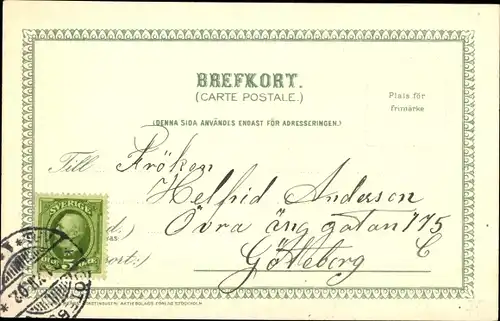 BREFKORT.
(CARTE POSTALE.)
Plats för
frimärke
(DENNA SIDA ANVÄNDES ENDAST FÖR ADRESSERINGEN.)
Till Fröken
Helfrid Anderson
Övra änggatan 175
C
Götteborg
SVERIGE
ort:)
AKTIEBOLAGS FÖRLAG STOCKHOLM